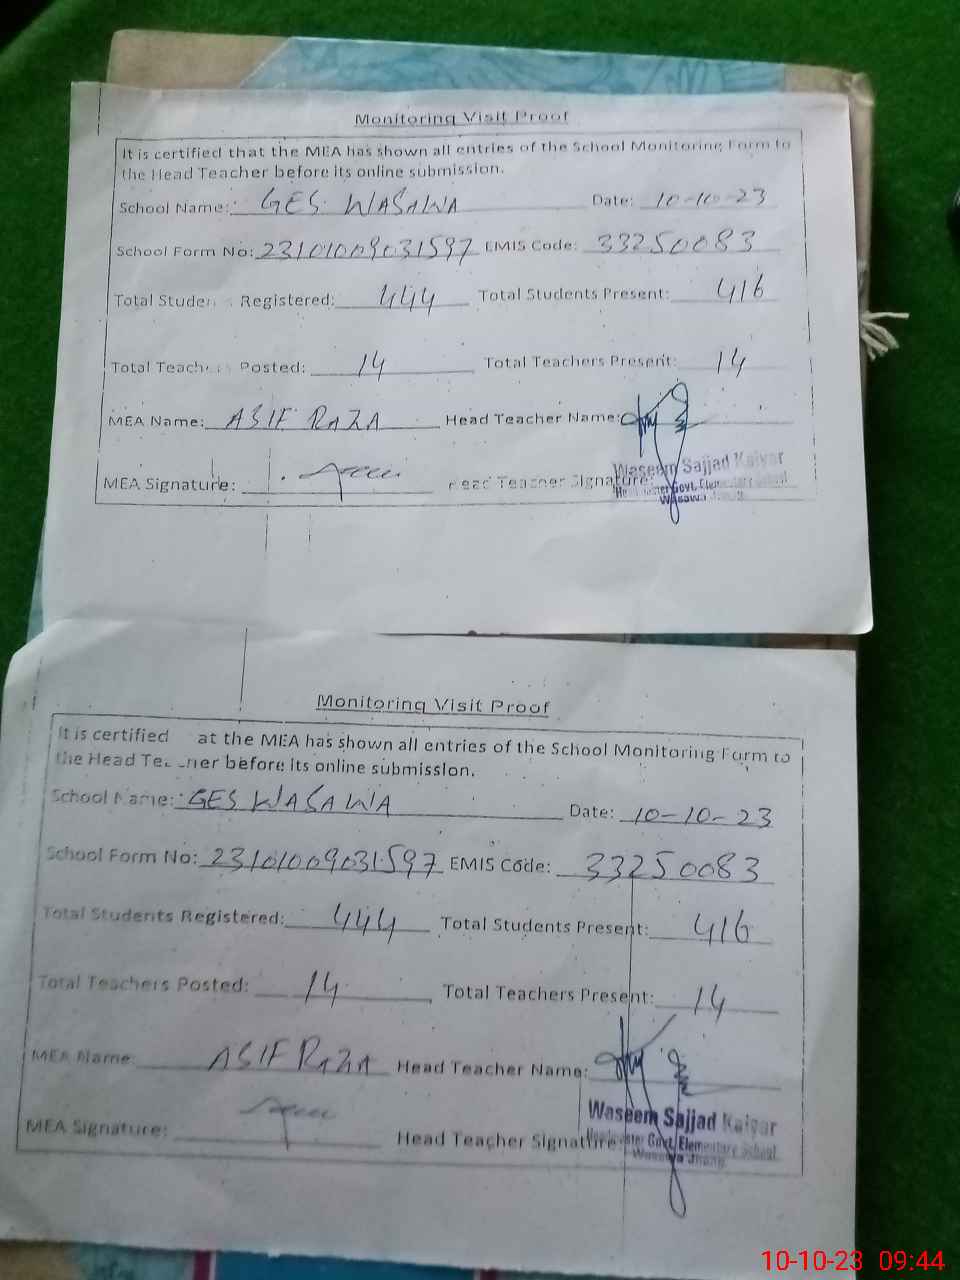 Monitoring Visit Proof
It is certified that the MEA has shown all entries of the School Monitoring Form to
the Head Teacher before its online submission.
School Name: GES WASAWA Date: 10-10-23
School Form No: 23101009031597 EMIS Code: 33250083
Total Studen Registered: 444 Total Students Present: 416
Total Teach s Posted: 14 Total Teachers Present: 14
MEA Name: ASIF RAZA Head Teacher Name:
MEA Signature: Head Teacher Signature:
Waseem Sajjad Kaiyar
Govt. Elementary School
Wasawa Jhang
Monitoring Visit Proof
It is certified at the MEA has shown all entries of the School Monitoring Form to
the Head Te ner before its online submission.
School Name: GES WASAWA Date: 10-10-23
School Form No: 23101009031597 EMIS Code: 33250083
Total Students Registered: 444 Total Students Present: 416
Total Teachers Posted: 14 Total Teachers Present: 14
MEA Name: ASIF RAZA Head Teacher Name:
MEA Signature: Head Teacher Signature:
Waseem Sajjad Kaiyar
Govt. Elementary School
Wasawa Jhang
10-10-23 09:44